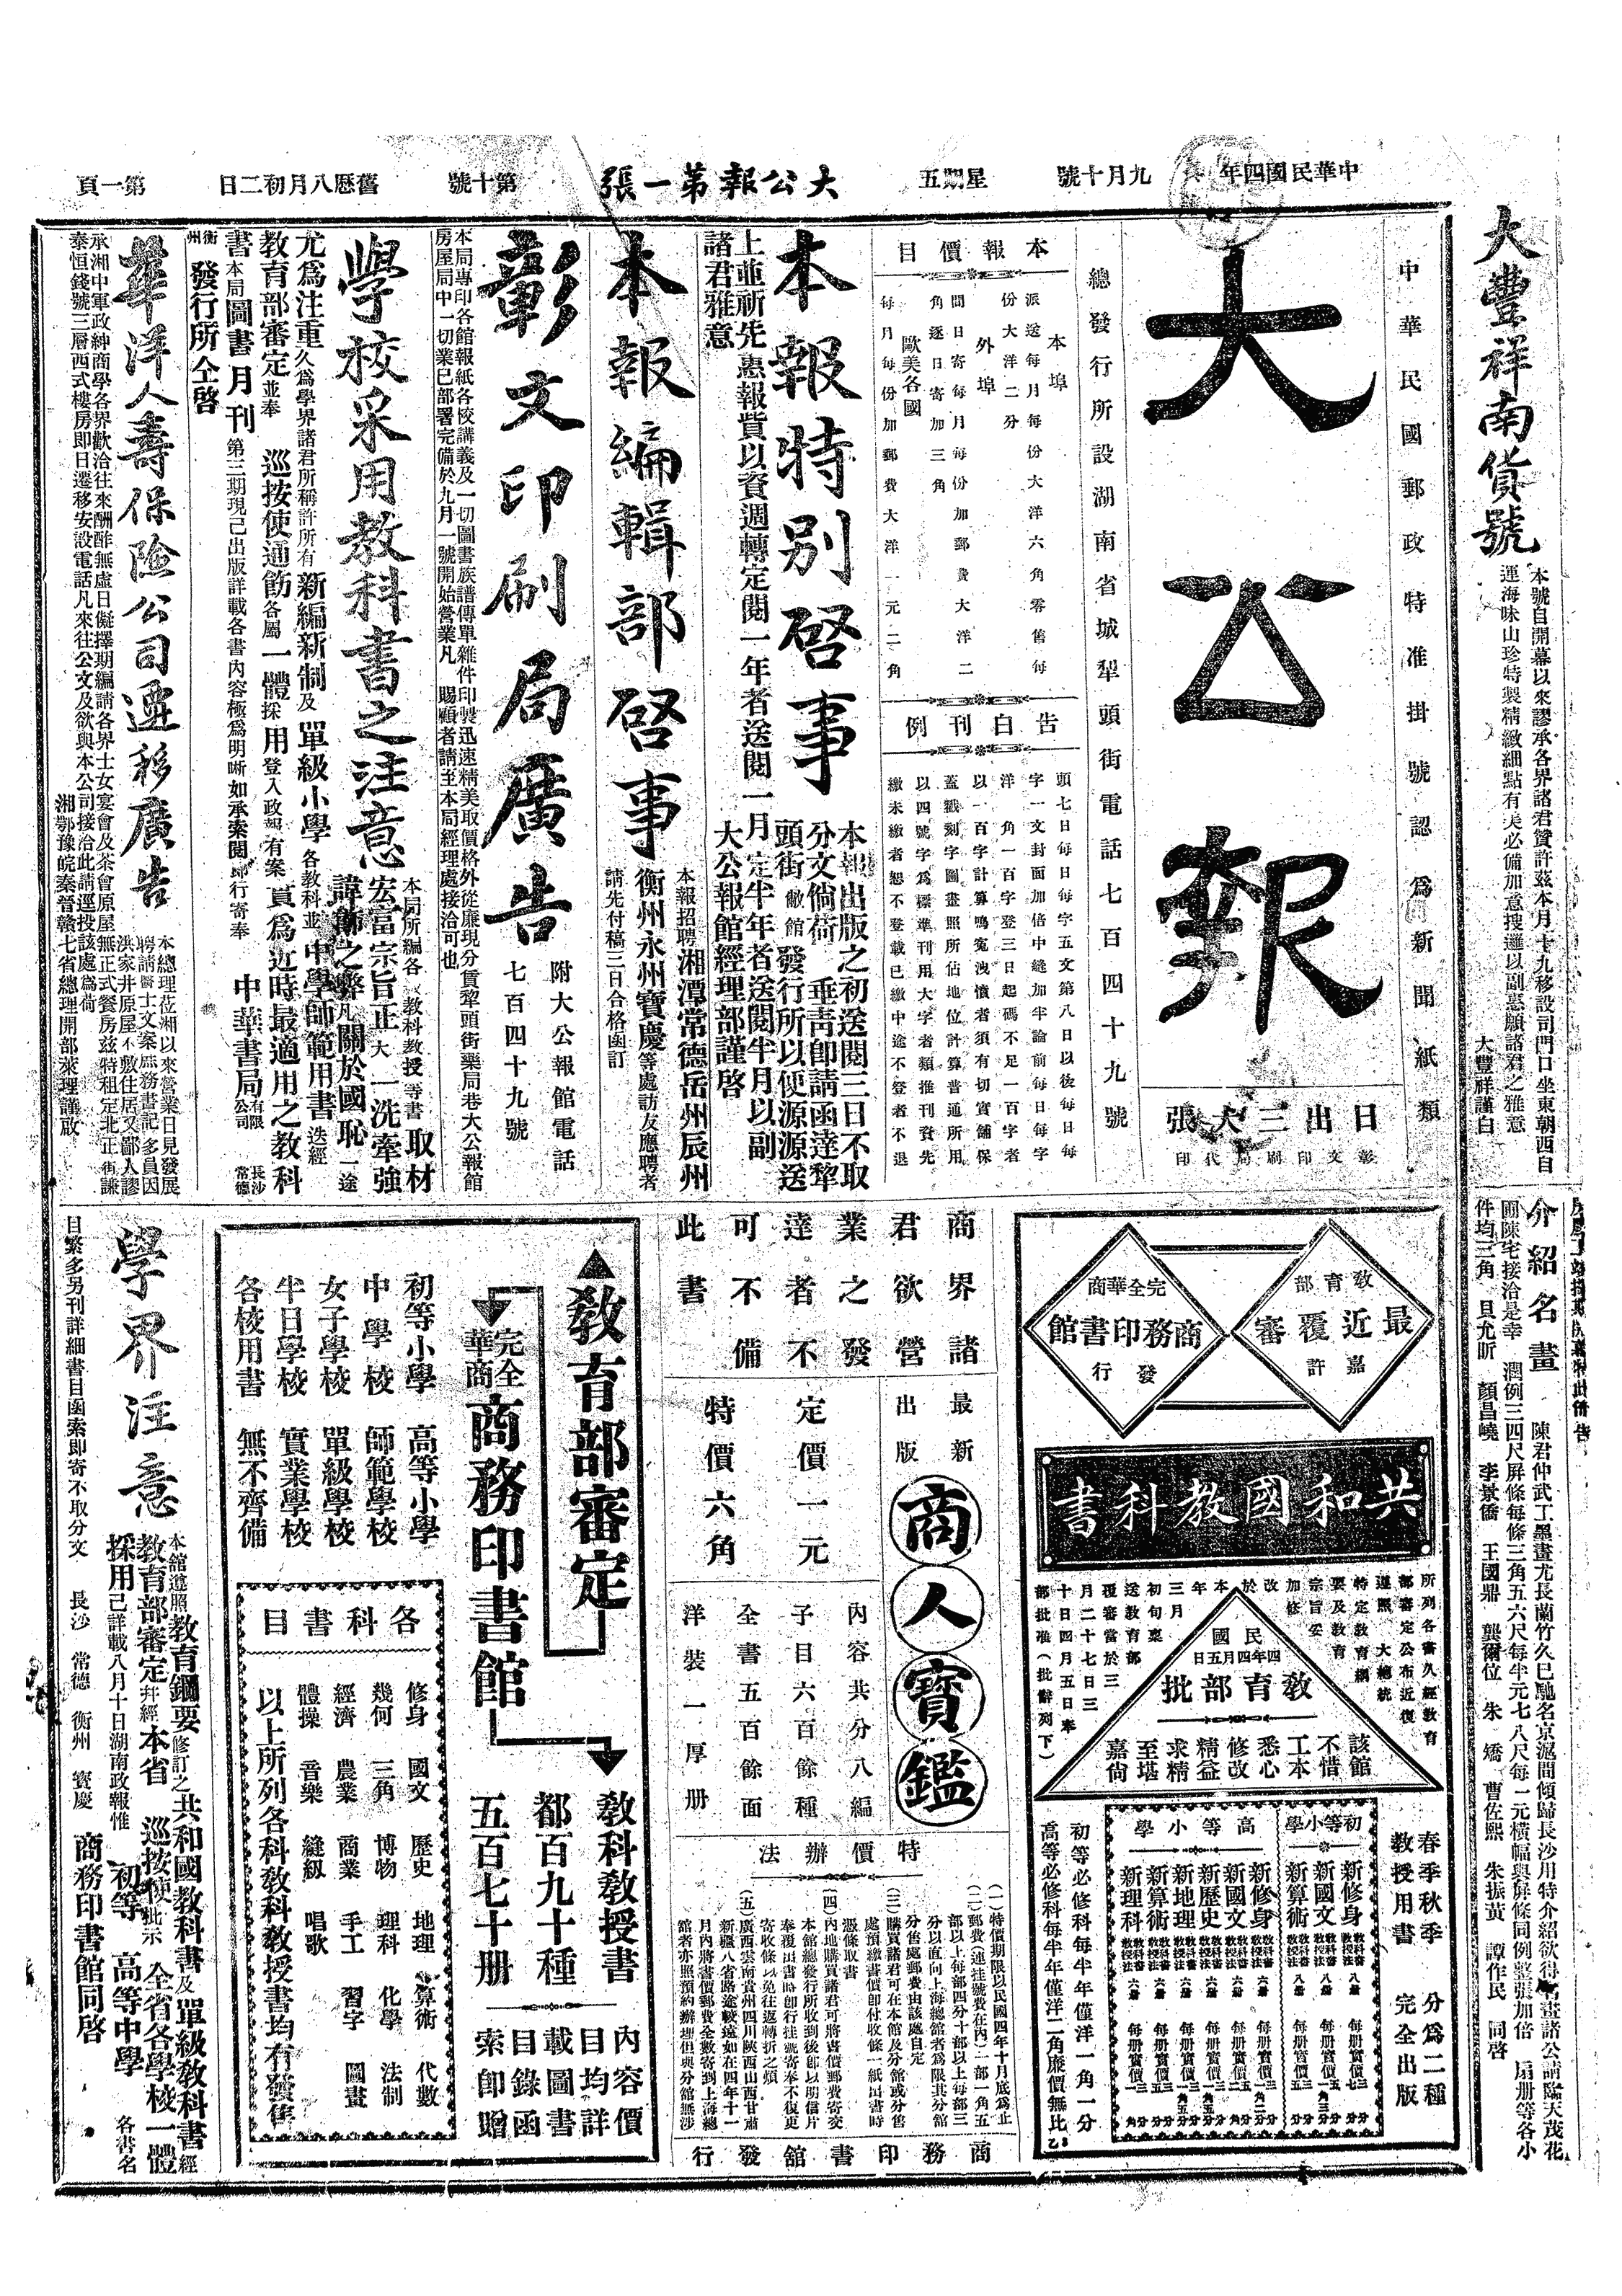 中華民國四年
九月十號
星期五
大公報第一張
第十號
舊曆八月初二日
第一頁
大豐祥南貨號
本號自開幕以來謬承各界諸君贊許茲本月十九移設司門口坐東朝西自
運海味山珍特製精緻細點有美必備加意搜邏以副惠顧諸君之雅意
大豐祥謹白
中華民國郵政特准掛號認爲新聞紙類
大公報
日出三大張
彰文印刷局代印
總發行所設湖南省城犁頭街電話七百四十九號
本報價目
本埠
派送每月每份大洋六角零售每
份大洋二分
外埠
間日寄每月每份加郵費大洋二
角逐日寄加三角
歐美各國
每月每份加郵費大洋一元二角
告白刊例
頭七日每日每字五文第八日以後每日每
字一文封面加倍中縫加半論前每日每字
洋一角一百字登三日起碼不足一百字者
以一百字計算鳴寃洩憤者須有切實舖保
蓋戳刻字圖畫照所佔地位計算普通所用
以四號字爲標準刊用大字者類推刊資先
繳未繳者恕不登載已繳中途不登者不退
本報特別啓事
本報出版之初送閱三日不取
分文倘荷 垂青卽請函達犂
頭街敝館發行所以便源源送
上並祈先惠報貲以資週轉定閱一年者送閱一月定半年者送閱半月以副
諸君雅意
大公報館經理部謹啓
本報編輯部啓事
本報招聘湘潭常德岳州辰州
衡州永州寶慶等處訪友應聘者
請先付稿三日合格函訂
彰文印刷局廣告
附大公報館電話
七百四十九號
本局專印各館報紙各校講義及一切圖書族譜傳單雜件印製迅速精美取價格外從廉現分賃犂頭街藥局巷大公報館
房屋局中一切業已部署完備於九月一號開始營業凡 賜顧者請至本局經理處接洽可也
學校采用教科書之注意
本局所編各教科教授等書取材
宏富宗旨正大一洗牽強
諱飾之弊凡關於國恥一途
尤爲注重久爲學界諸君所稱許所有新編新制及單級小學各教科並中學師範用書迭經
教育部審定並奉 巡按使通飭各屬一體採用登入政報有案眞爲近時最適用之教科
書本局圖書月刊第三期現已出版詳載各書內容極爲明晰如承索閱卽行寄奉
中華書局有限公司
長沙常德
衡州
發行所仝啓
華洋人壽保險公司遷移廣告
本總理莅湘以來營業日見發展
聘請醫士文案庶務書記多員因
洪家井原屋不敷住居又鄙人謬
承湘中軍政紳商學各界歡洽往來酬酢無虛日儗擇期編請各界士女宴會及茶會原屋無正式餐房茲特租定北正街謙
泰恒錢號三層西式樓房卽日遷移安設電話凡來往公文及欲與本公司接洽此請逕投該處爲荷
湘鄂豫皖秦晉贛七省總理開部來理謹啟
介紹名畫
陳君仲武工墨畫尤長蘭竹久已馳名京滬間傾歸長沙用特介紹欲得畫諸公請臨天茂花
圃陳宅接洽是幸 潤例三四尺屏條每條三角五六尺每半元七八尺每一元橫幅與屏條同例整張加倍 扇册等各小
件均三角 顏昌嶢 李景僑 王國鼎 龔爾位 朱矯 曹佐熙 朱振黃 譚作民 同啓
教育部
最近覆審
嘉許
完全華商
商務印書館
發行
共和國教科書
所列各書久經教育
部審定公布近復
遵照 大總統
特定教育綱
要及教育
宗旨妥
加修
改於
本年
三月
初旬稟
送教育部
覆審當於三
月二十七日三
十日四月五日奉
部批准(批辭列下)
民國
四年四月五日
教育部批
該館
不惜
工本
悉心
修改
精益
求精
至堪
嘉尚
春季秋季 分爲二種
教授用書 完全出版
初等小學
新修身
新國文
新算術
高等小學
新修身
新國文
新歷史
新地理
新算術
新理科
初等必修科每半年僅洋一角一分
高等必修科每半年僅洋二角廉價無比
商界諸
君欲營
業之發
達者不
可不備
此書
最新
出版
商人寶鑑
定價一元
特價六角
內容共分八編
子目六百餘種
全書五百餘面
洋裝一厚册
特價辦法
(一)特價期限以民國四年十月底爲止
(二)郵費(連挂號費在內)一部一角五
部以上每部四分十部以上每部三
分以直向上海總館者爲限其分館
分售處郵費由該處自定
(三)購買諸君可在本館及分館或分售
處預繳書價卽付收條一紙出書時
憑條取書
(四)內地購買諸君可將書價郵費寄交
本館總發行所收到後卽以明信片
奉覆出書時卽行挂號寄奉不復更
寄收條以免往返轉折之煩
(五)廣西雲南貴州四川陝西山西甘肅
新疆八省路途較遠如在四年十一
月內將書價郵費全數寄到上海總
館者亦照預約辦理但與分館無涉
商務印書館發行
教育部審定
完全
華商
商務印書館
教科教授書
都百九十種
五百七十册
內容價
目均詳
載圖書
目錄函
索卽贈
初等小學 高等小學
中學校 師範學校
女子學校 單級學校
半日學校 實業學校
各校用書 無不齊備
各科書目
修身 國文 歷史 地理 算術 代數
幾何 三角 博物 理科 化學 法制
經濟 農業 商業 手工 習字 圖畫
體操 音樂 縫紉 唱歌
以上所列各科教科教授書均有發售
學界注意
本館遵照教育綱要修訂之共和國教科書及單級教科書經
教育部審定并經本省 巡按使批示 全省各學校一體
採用已詳載八月十日湖南政報惟 初等 高等中學 各書名
目繁多另刊詳細書目函索卽寄不取分文 長沙 常德 衡州 寶慶 商務印書館同啓